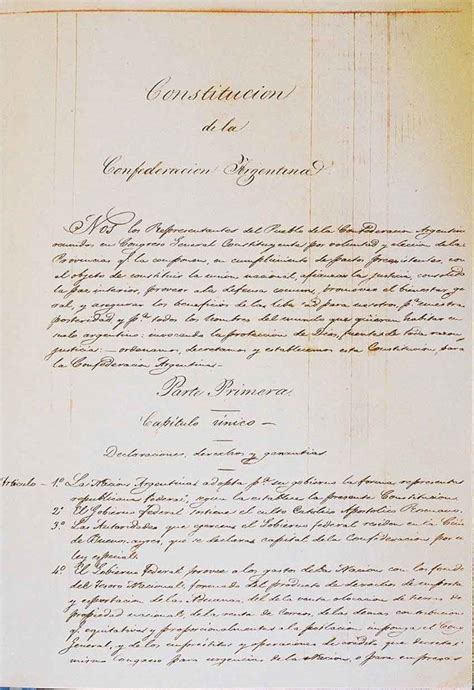 Constitucion
de la
Confederacion Argentina
Nos los Representantes del Pueblo de la Confederacion Argentina
reunidos en Congreso General Constituyente por voluntad y eleccion de las
Provincias q.e la componen, en cumplimiento de pactos preexistentes, con
el objeto de constituir la union nacional, afianzar la justicia, consolidar
la paz interior, proveer a la defensa comun, promover el bienestar gene
ral, y asegurar los beneficios de la libertad para nosotros p.a nuestra
posteridad y p.a todos los hombres del mundo que quieran habitar en
suelo argentino: invocando la proteccion de Dios, fuente de toda razon
y justicia: - ordenamos, decretamos y establecemos esta Constitucion, para
la Confederacion Argentina.
Parte Primera
Capitulo único
Declaraciones, derechos y garantias
Articulo - 1.º La Nacion Argentina adopta p.a su gobierno la forma representativa
republicana federal, segun la establece la presente Constitucion
2.º El Gobierno Federal sostiene el culto Catolico Apostolico Romano.
3.º Las Autoridades que ejercen el Gobierno federal residen en la Ciudad
de Buenos ayres, que se declara capital de la Confederacion por u
ley especial.
4.º El Gobierno Federal provee a los gastos de la Nacion con los fondos
del Tesoro Nacional, formado del producto de derechos de importa
y esportacion de las Aduanas, del de la venta o locacion de tierras de
propiedad nacional, de la renta de Correos, de las demas contribucion
q.e equitativa y proporcionalmente a la poblacion imponga el Cong
General, y de los empréstitos y operaciones de credito que decrete
mismo Congreso para urgencias de la Nacion, o para empresas